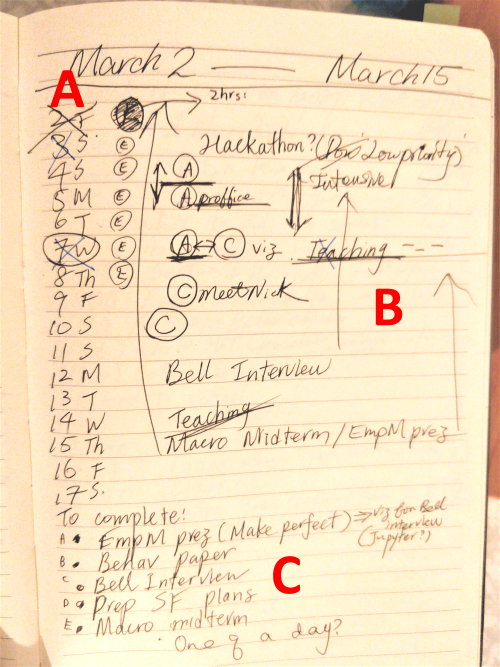 March 2 March 15
A
2 F E 2hrs:
3 S E Hackathon? (Low priority)
4 S E A Intensive
5 M E A pr office
6 T E
7 W E A ↔ C viz Teaching ---
8 Th E
9 F C meet Nick
B
10 S C
11 S
12 M Bell Interview
13 T
14 W Teaching
15 Th Macro Midterm / EmpM prez
16 F
17 S.
To complete:
A • EmpM prez (Make perfect) ⇒ viz for Bell interview (Jupyter?)
B • Behav paper
C • Bell Interview
C
D • Prep SF plans
E • Macro midterm
One q a day?